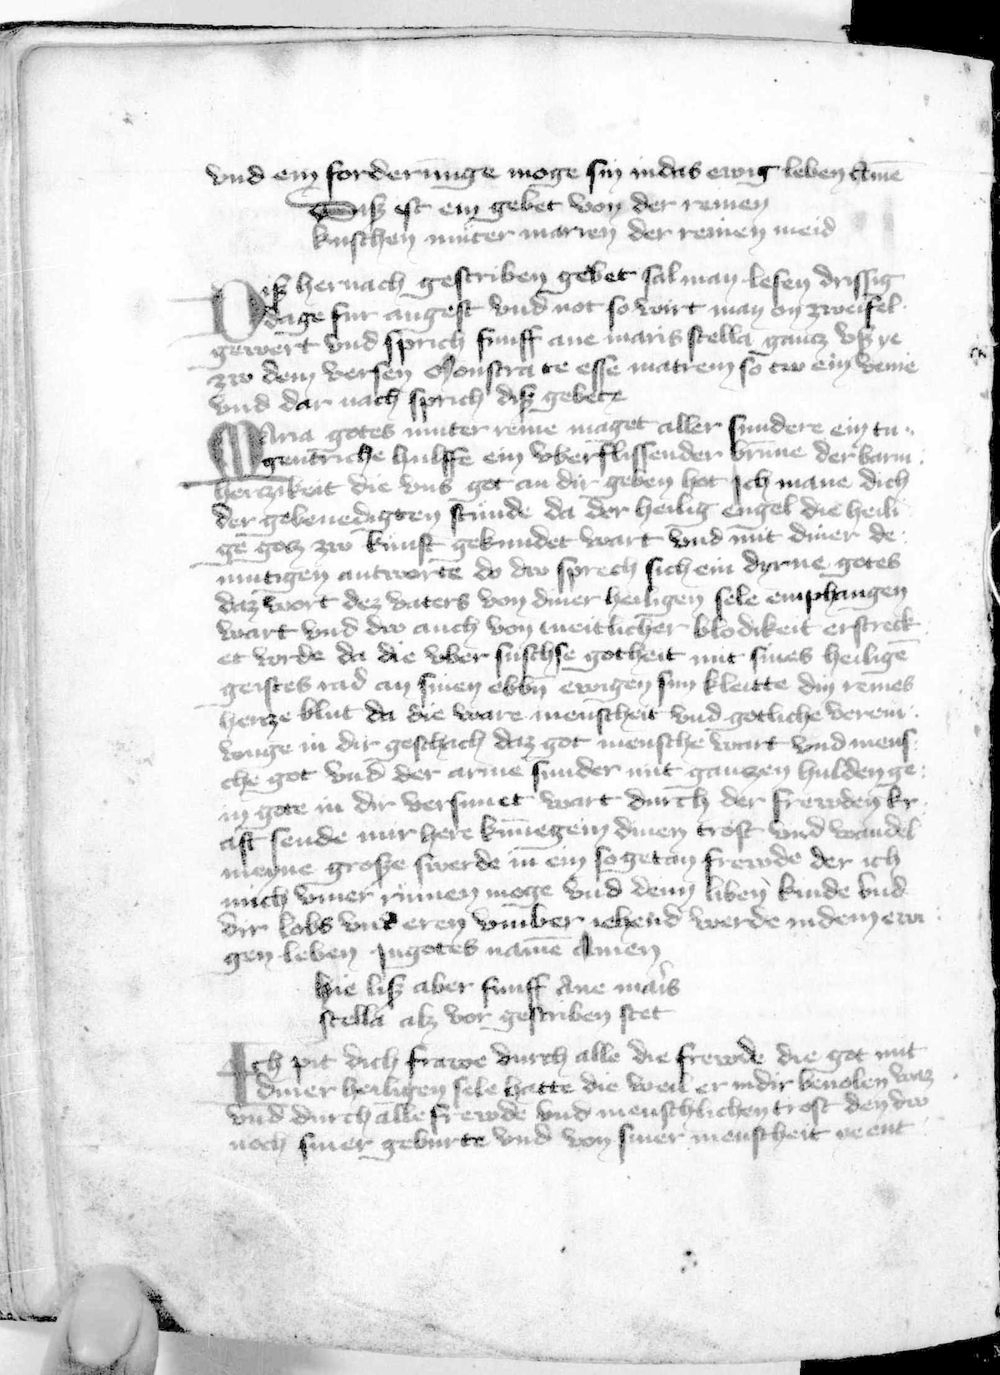 vnd ein forderunge moge sin in das ewig leben Amē
Disz ist ein gebet von der reinen
kuschen muter marien der reinen meid
Disz hernach gescriben gebet sal man lesen drissig
dage fur angest vnd not so wirt man on zweifel
gewert vnd sprich funff aue maris stella gancz vsz ye
zw dem versen Monstra te esse matrem so tw ein venie
vnd dar nach sprich disz gebete
Maria gotes muter reine maget aller sundere ein tu
gentriche hulffe ein vberflissender brūne der barm
herczikeit die vns got an dir geben hot Ich mane dich
der gebenedigten stunde da der heilig engel die heili
ge gotz zw kunft gekundet wart vnd mit diner de
mutigen antworte do dw sprech sich ein dyrne gotes
daz wort dez vaters von diner heiligen sele emphangen
wart vnd dw auch von meitlicher blodikeit erstreck
et wrde da die vber suschse gotheit mit sines heilige
geistes rad an sinen ebbn ewigen sun kleitte din reines
hercze blut da die ware menscheit vnd gotliche verein
unge in dir geschach daz got mensche wart vnd mens
che got vnd der arme sunder mit ganczen hulden ge
in gote in dir versunet wart durch der frewden kr
aft sende mir here kunnegein dinen trost vnd wandel
meyne grosze swerde in ein so getan frewde der ich
mich vmer rinnen moge vnd dein liben kinde vnd
dir lobs vnd eren vmber iehend werde in dem ewi
gen leben In gotes name Amen
Hie lisz aber funff Aue maris
stella alz vor gescriben stet
Ich pit dich frawe durch alle die frewde die got mit
diner heiligen sele hatte die weil er in dir beuolen waz
vnd durch alle frewde vnd menschlichen trost den dw
noch siner geburte vnd von siner menscheit